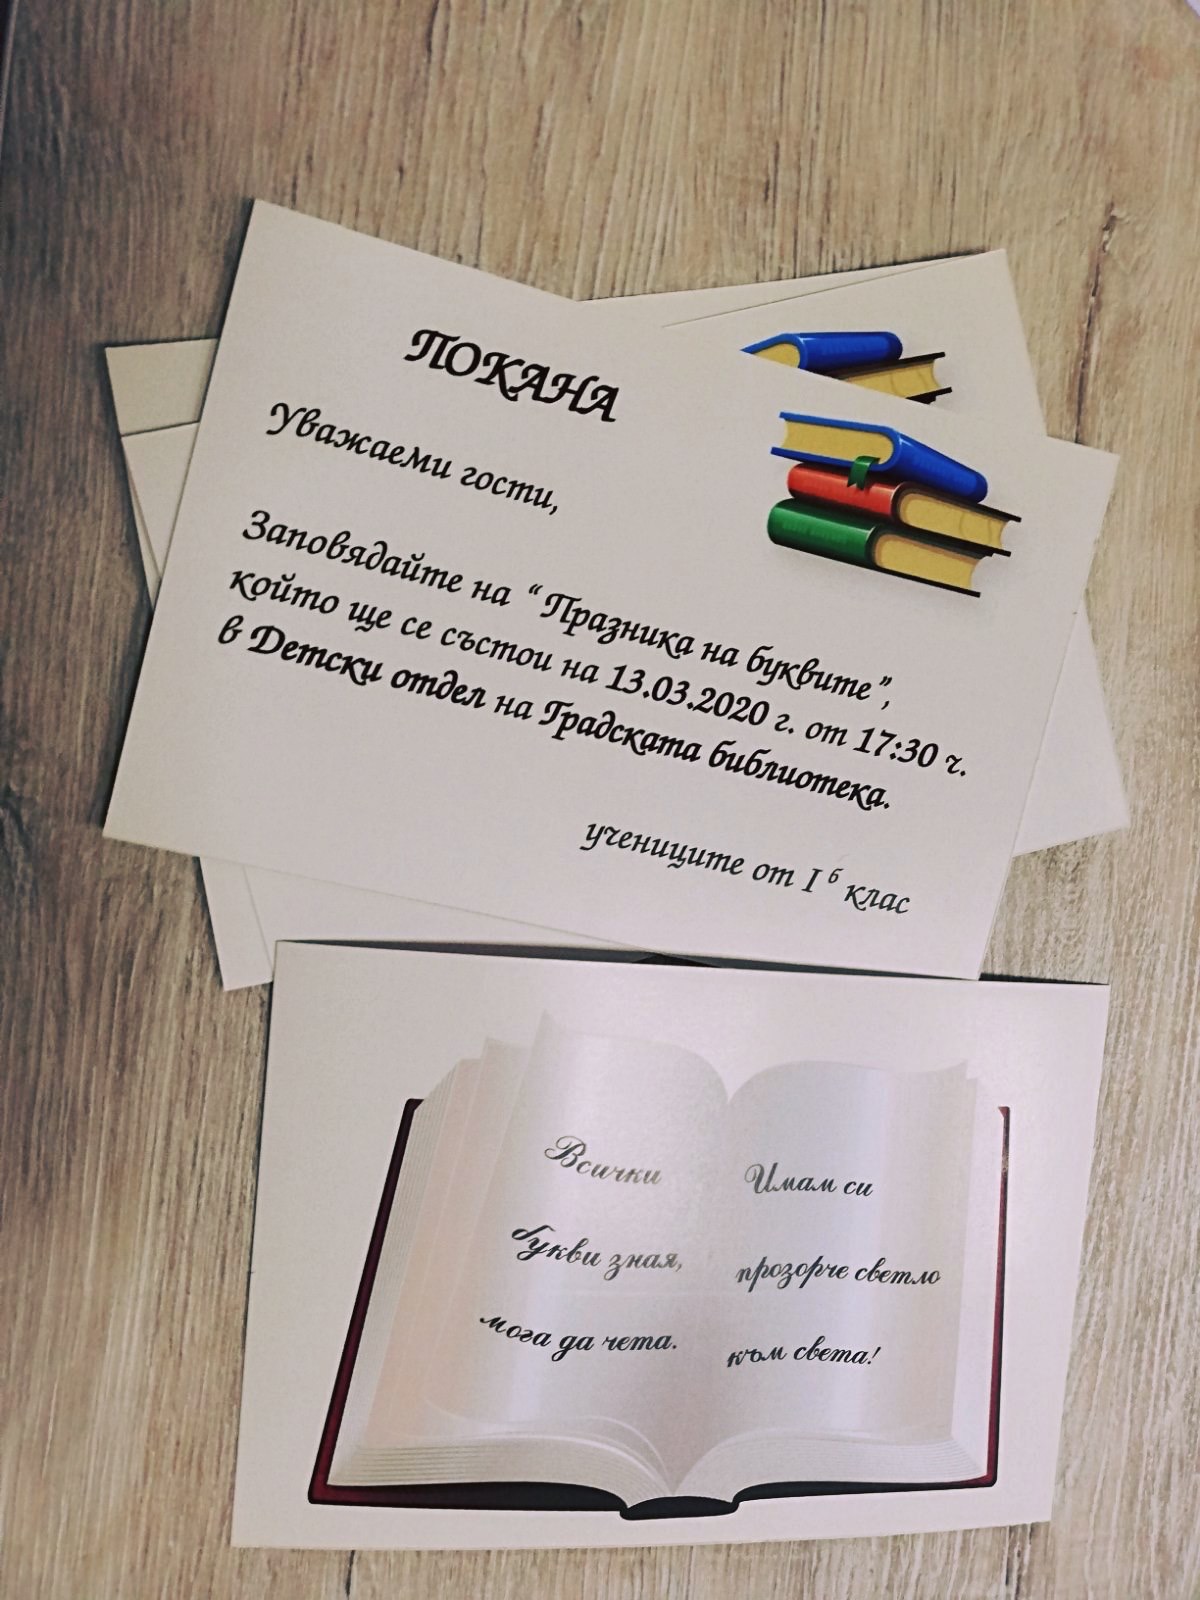 ПОКАНА
Уважаеми гости,
Заповядайте на “Празника на буквите”,
който ще се състои на 13.03.2020 г. от 17:30 ч.
в Детски отдел на Градската библиотека.
учениците от I б клас
Всички
букви зная,
мога да чета.
Имам си
прозорче светло
към света!